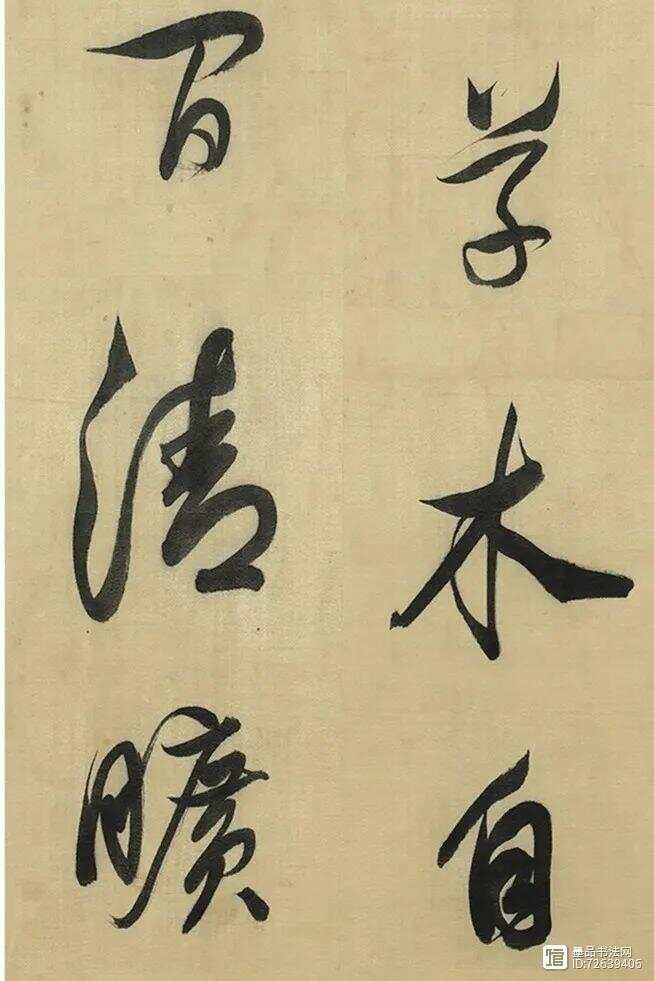 草木自
百清曠
墨品书法网
ID:72639406